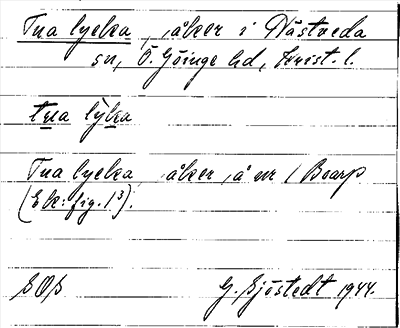 Tua lycka, åker i Nästveda
sn, Ö. Göinge hd, Krist. l.
tua lyka
Tua lycka åker å nr 1 Boarp
(Ek: fig. 1³).
SOS G. Sjöstedt 1944.